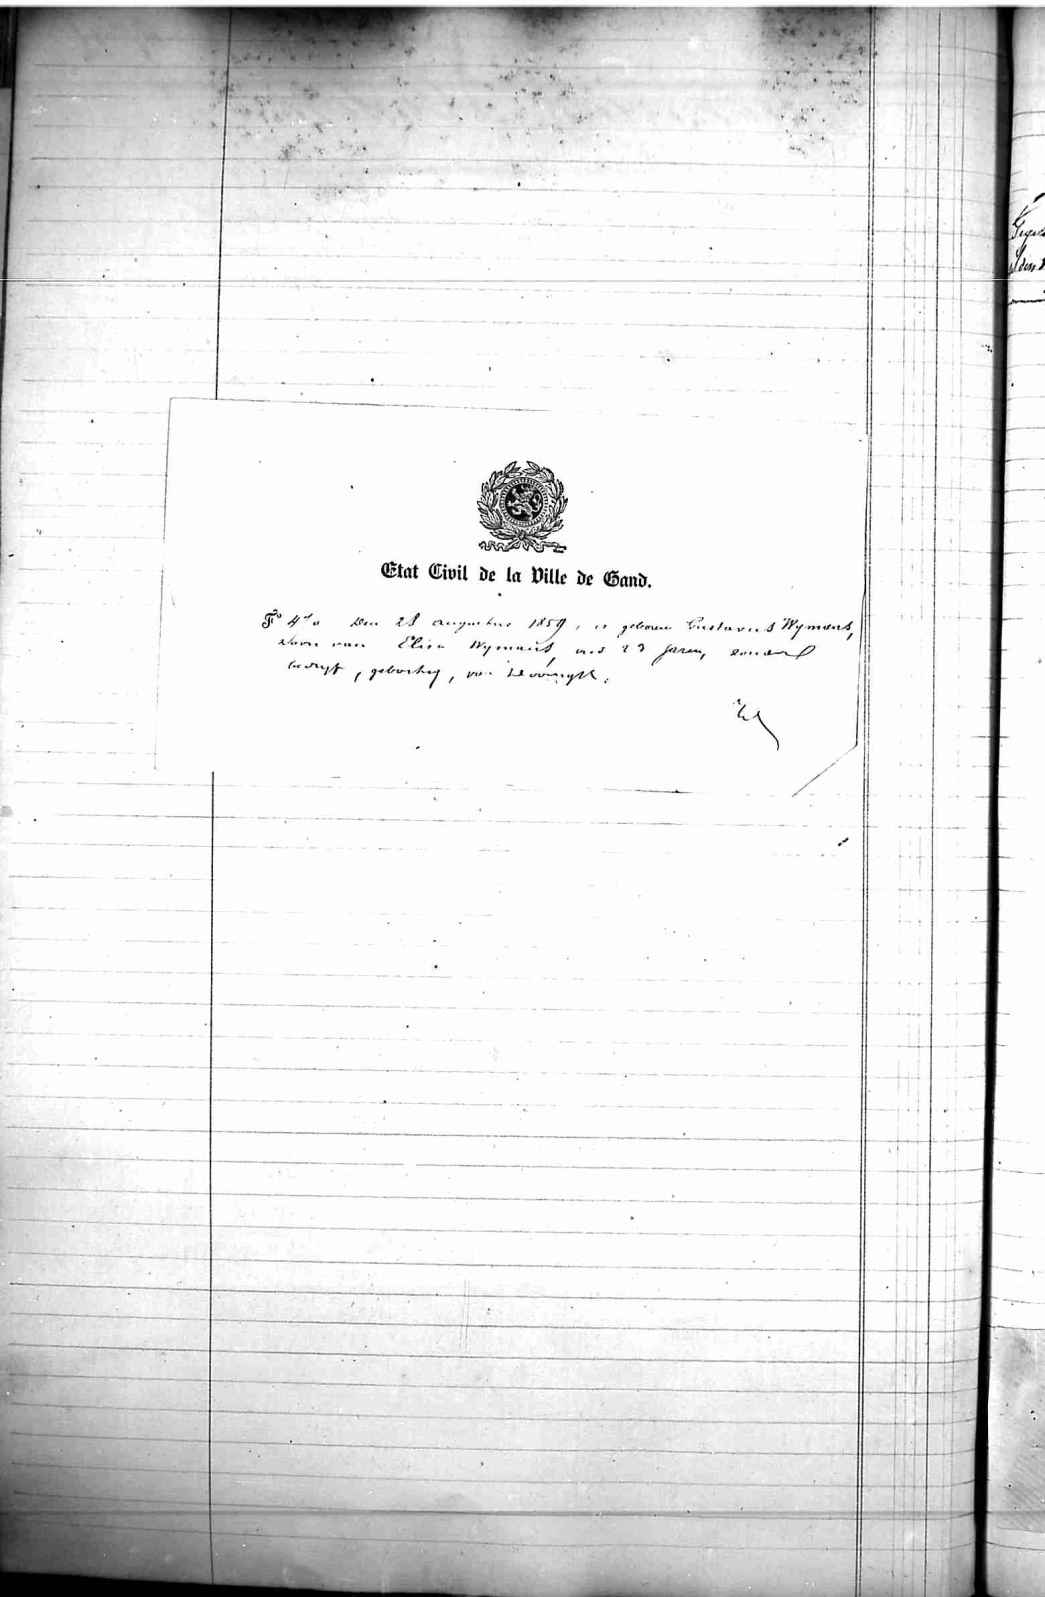 Etat Civil de la Ville de Gand.
Den 28 augustus 1859, is geboren Gustavus Wymans,
zoon van Elisa Wymans, oud 23 jaren, zonder
bedryf, geboortig, van